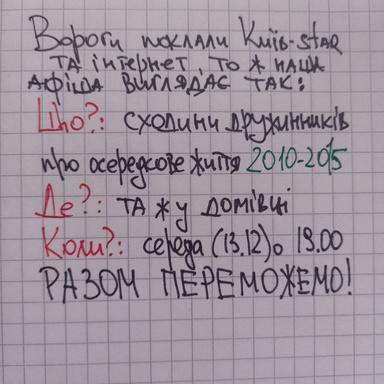 Вороги поклали Київ-star
та інтернет, то ж наша
афіша виглядає так:
Що?: сходини дружинників
про осередкове життя 2010-2015
Де?: та ж у домівці
Коли?: середа (13.12) о 19.00
РАЗОМ ПЕРЕМОЖЕМО!